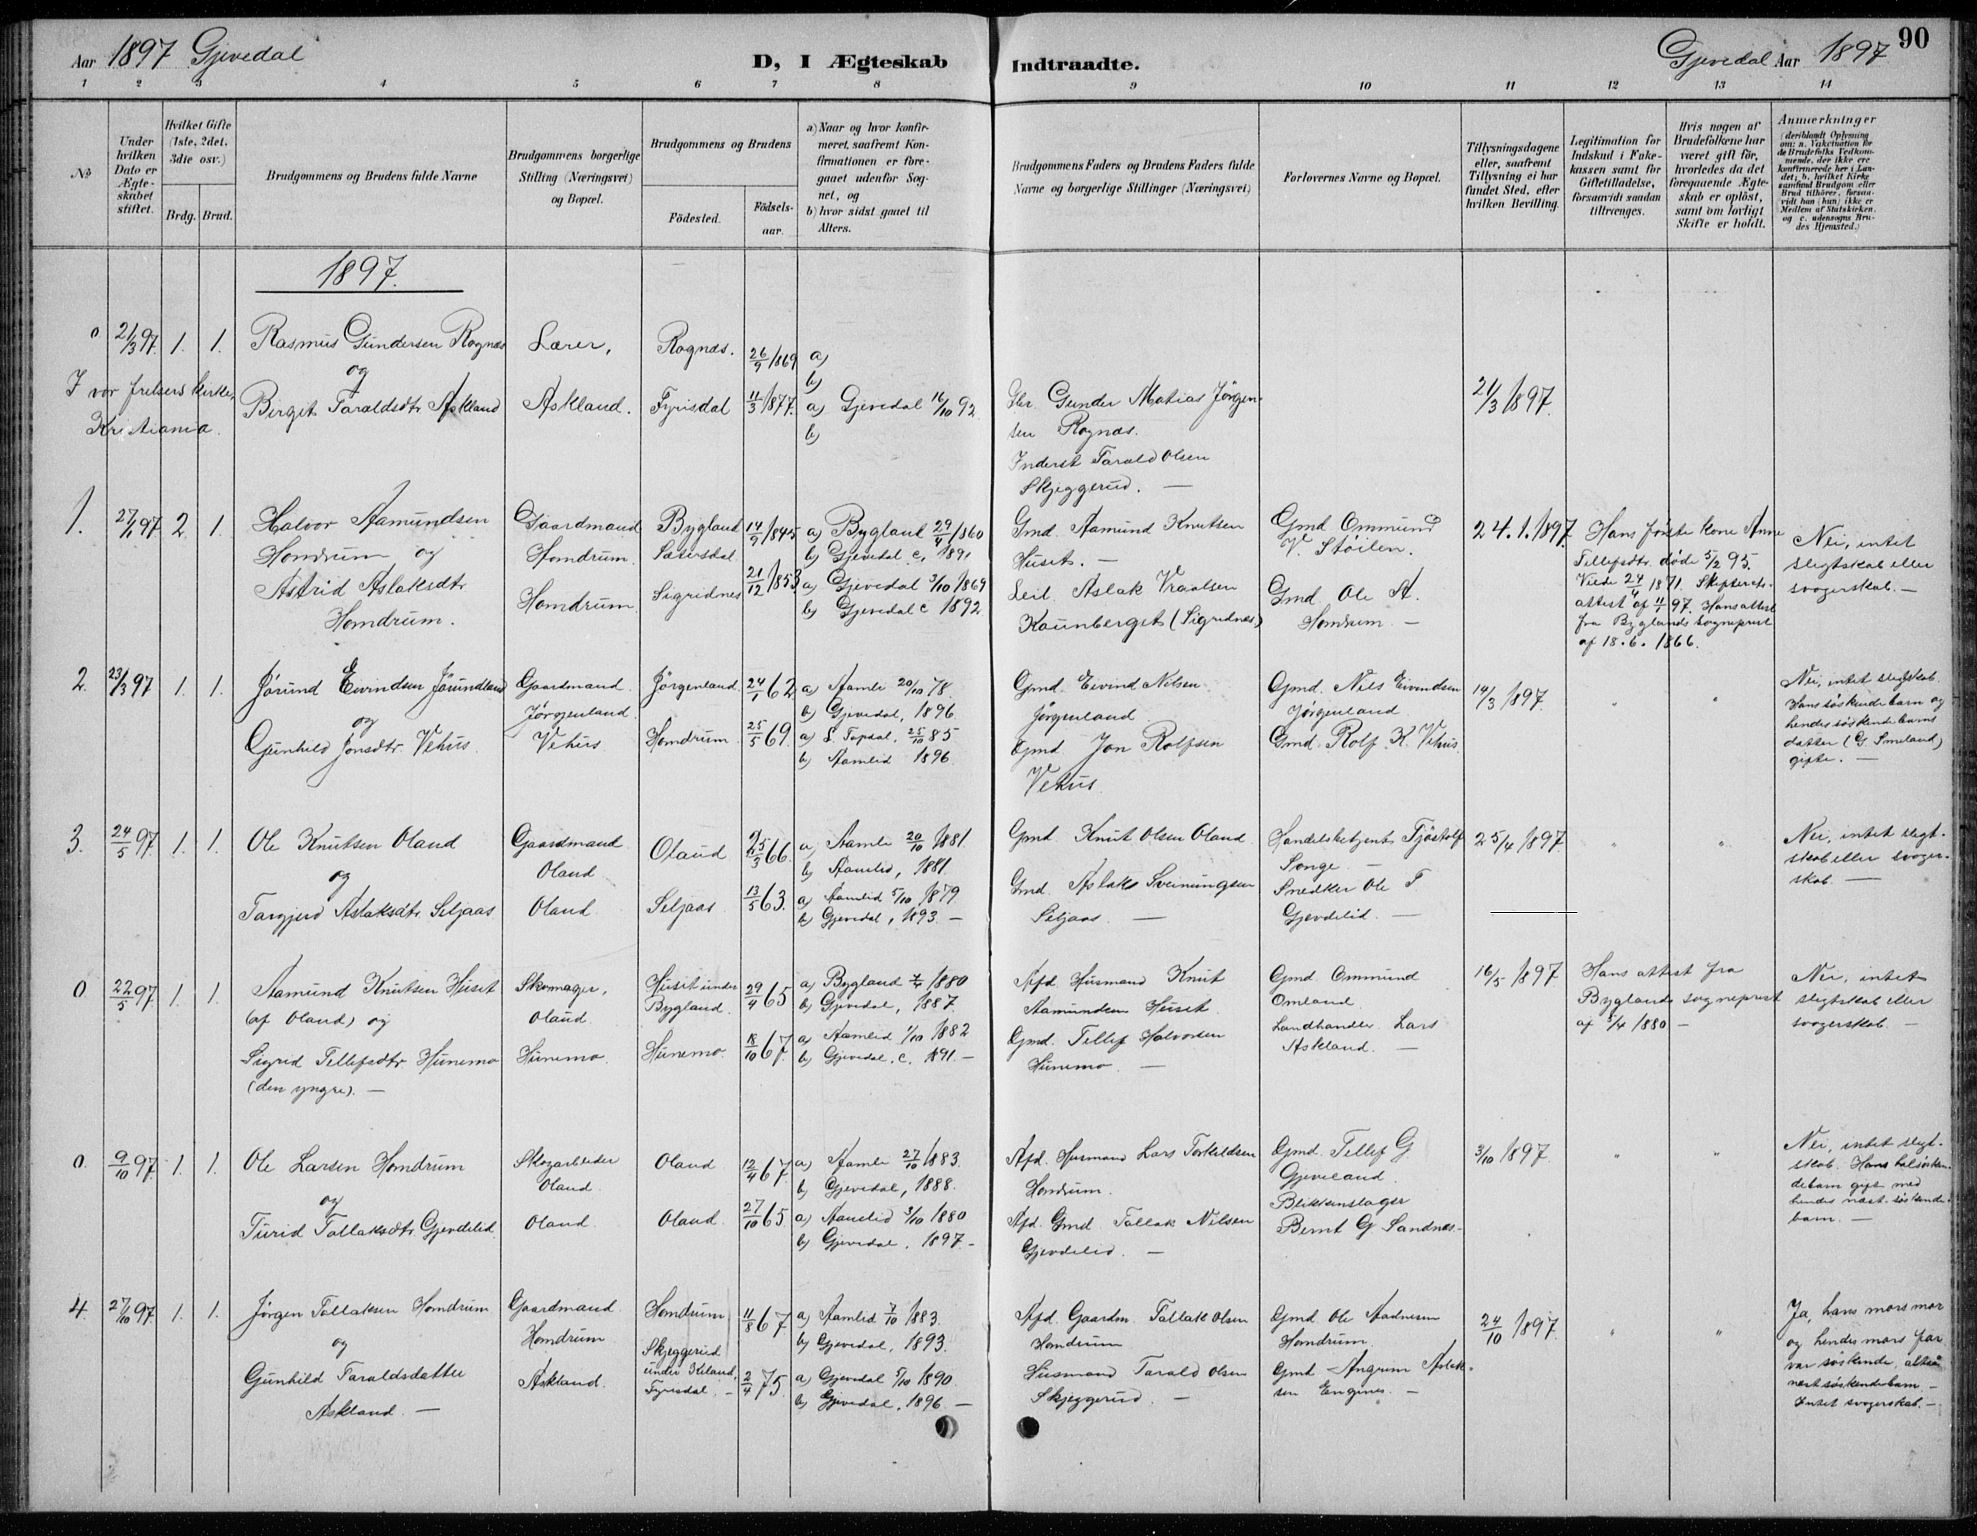 Aar 1897 Gjevedal
D, I Ægteskab Indtraadte.
Gjevedal Aar 1897
90
1 2 3 4 5 6 7 8 9 10 11 12 13 14
No
Under hvilken Dato er Ægteskabet stiftet.
Hvilket Gifte (1ste, 2det, 3die osv.)
Brdg. Brud.
Brudgommens og Brudens fulde Navne
Brudgommens borgerlige Stilling (Næringsvei) og Bopæl.
Brudgommens og Brudens
Födested.
Födsels-aar.
a) Naar og hvor konfir-
meret, saafremt Kon-
firmationen er fore-
gaaet udenfor Sog-
net, og
b) hvor sidst gaaet til
Alters.
Brudgommens Faders og Brudens Faders fulde
Navne og borgerlige Stillinger (Næringsvei)
Forlovernes Navne og Bopæl.
Tillysningsdagene
eller, saafremt
Tillysning ei har
fundet Sted, efter
hvilken Bevilling.
Legitimation for
Indskud i Enke-
kassen samt for
Giftetilladelse,
forsaavidt saadan
tiltrænges.
Hvis nogen af
Brudefolkene har
været gift för,
hvorledes da det
foregaaende Ægte-
skab er oplöst,
samt om lovligt
Skifte er holdt.
Anmærkninger
(deriblandt Oplysning
om: a. Vakcination for
de Brudefolks Vedkom-
mende, der ikke ere
konfirmerede her i Lan-
det; b. hvilket Kirke-
samfund Brudgom eller
Brud tilhörer, forsaa-
vidt han (hun) ikke er
Medlem af Statskirken,
og c. udensogns Bru-
des Hjemsted.)
1897.
0 21/3 97. 1. 1. Rasmus Gundersen Rognæs Lærer, Rognæs. 26/9 1869 a)
og b)
I vor frelsers kirke, Kristiania.
Birgit Taraldsdtr Askland Askland. Fyrisdal 11/3 1877. a) Gjevedal 16/10 92.
b)
Gbr. Gunder Matias Jörgen-
sen Rognæs.
Inderst Tarald Olsen
Skjeggerud. —
21/3 1897.
1. 27/1 97 2. 1. Halvor Aamundsen Gaardmand Bygland 14/9 1845 a) Bygland 29/4 1860
Homdrum og Homdrum. Sætersdal b) Gjevedal c, 1891
Astrid Aslaksdtr Homdrum. Sigridnes 21/12 1853 a) Gjevedal 3/10 1869
Homdrum. b) Gjevedal c 1892.
Gmd. Aamund Knutsen
Huset. —
Leil. Aslak Vraalsen
Kaunberget (Sigridnes)
Gmd Ommund
V. Stöilen.
Gmd Ole A.
Homdrum. —
24.1.1897.
Hans første kone Anne
Tellefsdtr. døde 5/2 95.
Viede 24/4 1871. Skifterets-
attest af 11/1 97. Hans attest
fra Byglands sogneprest
af 18.6.1866.
Nei, intet
slegtskab eller
svogerskab. —
2. 23/3 97 1. 1. Jörund Eivindsen Jörundland Gaardmand Jörgenland 24/1 62 a) Aamli 20/10 78.
og Jörgenland. b) Gjevedal, 1896.
Gunhild Jonsdtr Vehus. Vehus Homdrum 25/5 69. a) Ö. Topdal, 25/10 85
b) Aamlid 1896.
Gmd. Eivind Nilsen
Jörgenland
Gmd Jon Rolfsen
Vehus.
Gmd. Nils Eivindsen
Jörgenland
Gmd. Rolf K. Vehus.
14/3 1897.
Nei, intet slegtskab.
Hans söskendebarn og
hendes söskendebarns
datter (G. Smeland)
gifte. —
3. 24/5 97. 1. 1. Ole Knutsen Oland Gaardmand Oland 25/3 66. a) Aamli 20/10 1881.
og Oland b) Aamlid, 1881.
Targjerd Aslaksdtr Seljaas Oland Seljaas 13/5 63. a) Aamlid 5/10 1879.
b) Gjevedal, 1893. —
Gmd. Knut Olsen Oland
Gmd. Aslak Sveinungsen
Seljaas —
Handelsbetjent Tjöstolf
Songe —
Snedker Ole T
Gjevdelid. —
25/4 1897
Nei, intet slegt-
skab eller svoger-
skab. —
0 22/5 97 1. 1. Aamund Knutsen Huset Skomager, Huset under 29/4 65 a) Bygland 1880
(af Oland) og Oland. Bygland. b) Gjevedal, 1887.
Sigrid Tellefsdtr Hunemo Hunemo Hunemo 18/10 67 a) Aamlid 1/10 1882
(den yngre). — b) Gjevedal, c. 1891. —
Afd. Husmand Knut
Aamundsen Huset.
Gmd. Tellef Halvorsen
Hunemo —
Gmd Ommund
Omland.
Landhandler Lars
Askland. —
16/5 1897
Hans attest fra
Byglands sogneprest
af 5/4 1880 —
Nei, intet
slegtskab eller
svogerskab. —
0. 9/10 97. 1. 1. Ole Larsen Homdrum Skogarbeider Oland 12/4 67. a) Aamli 27/10 1883.
og Oland. b) Gjevedal, 1888.
Turid Tallaksdtr. Gjevdelid. Oland. Oland. 27/10 65 a) Aamlid 3/10 1880
b) Gjevedal, 1897. —
Afd. Husmand Lars Torkildsen
Homdrum.
Afd. Gmd. Tallak Nilsen
Gjevdelid. —
Gmd. Tellef G
Gjeveland.
Blikkenslager
Bernt G. Sandnes-
3/10 1897.
Nei, intet slegt-
skab. Hans halsösken-
debarn gift med
hendes næst söskende-
barn. —
4. 27/10 97. 1. 1. Jörgen Tallaksen Homdrum Gaardmand Homdrum 11/8 67 a) Aamlid 7/10 1883.
og Homdrum b) Gjevedal, 1893.
Gunhild Taraldsdatter Askland. Skjeggerud under Kiland, Fyrisdal. — 2/4 75. a) Gjevedal 5/10 1890.
Askland. — b) Gjevedal, 1896 —
Afd. Gaardm. Tallak Olsen
Homdrum
Husmand Tarald Olsen
Skjeggerud. —
Gmd Ole Aadnesen
Homdrum
Gmd Angrim Aslak-
sen Engenes. —
24/10 1897.
Ja, hans mors mor
og hendes mors far
var söskende, altsaa
næst söskendebarn. —
Intet svogerskab. —